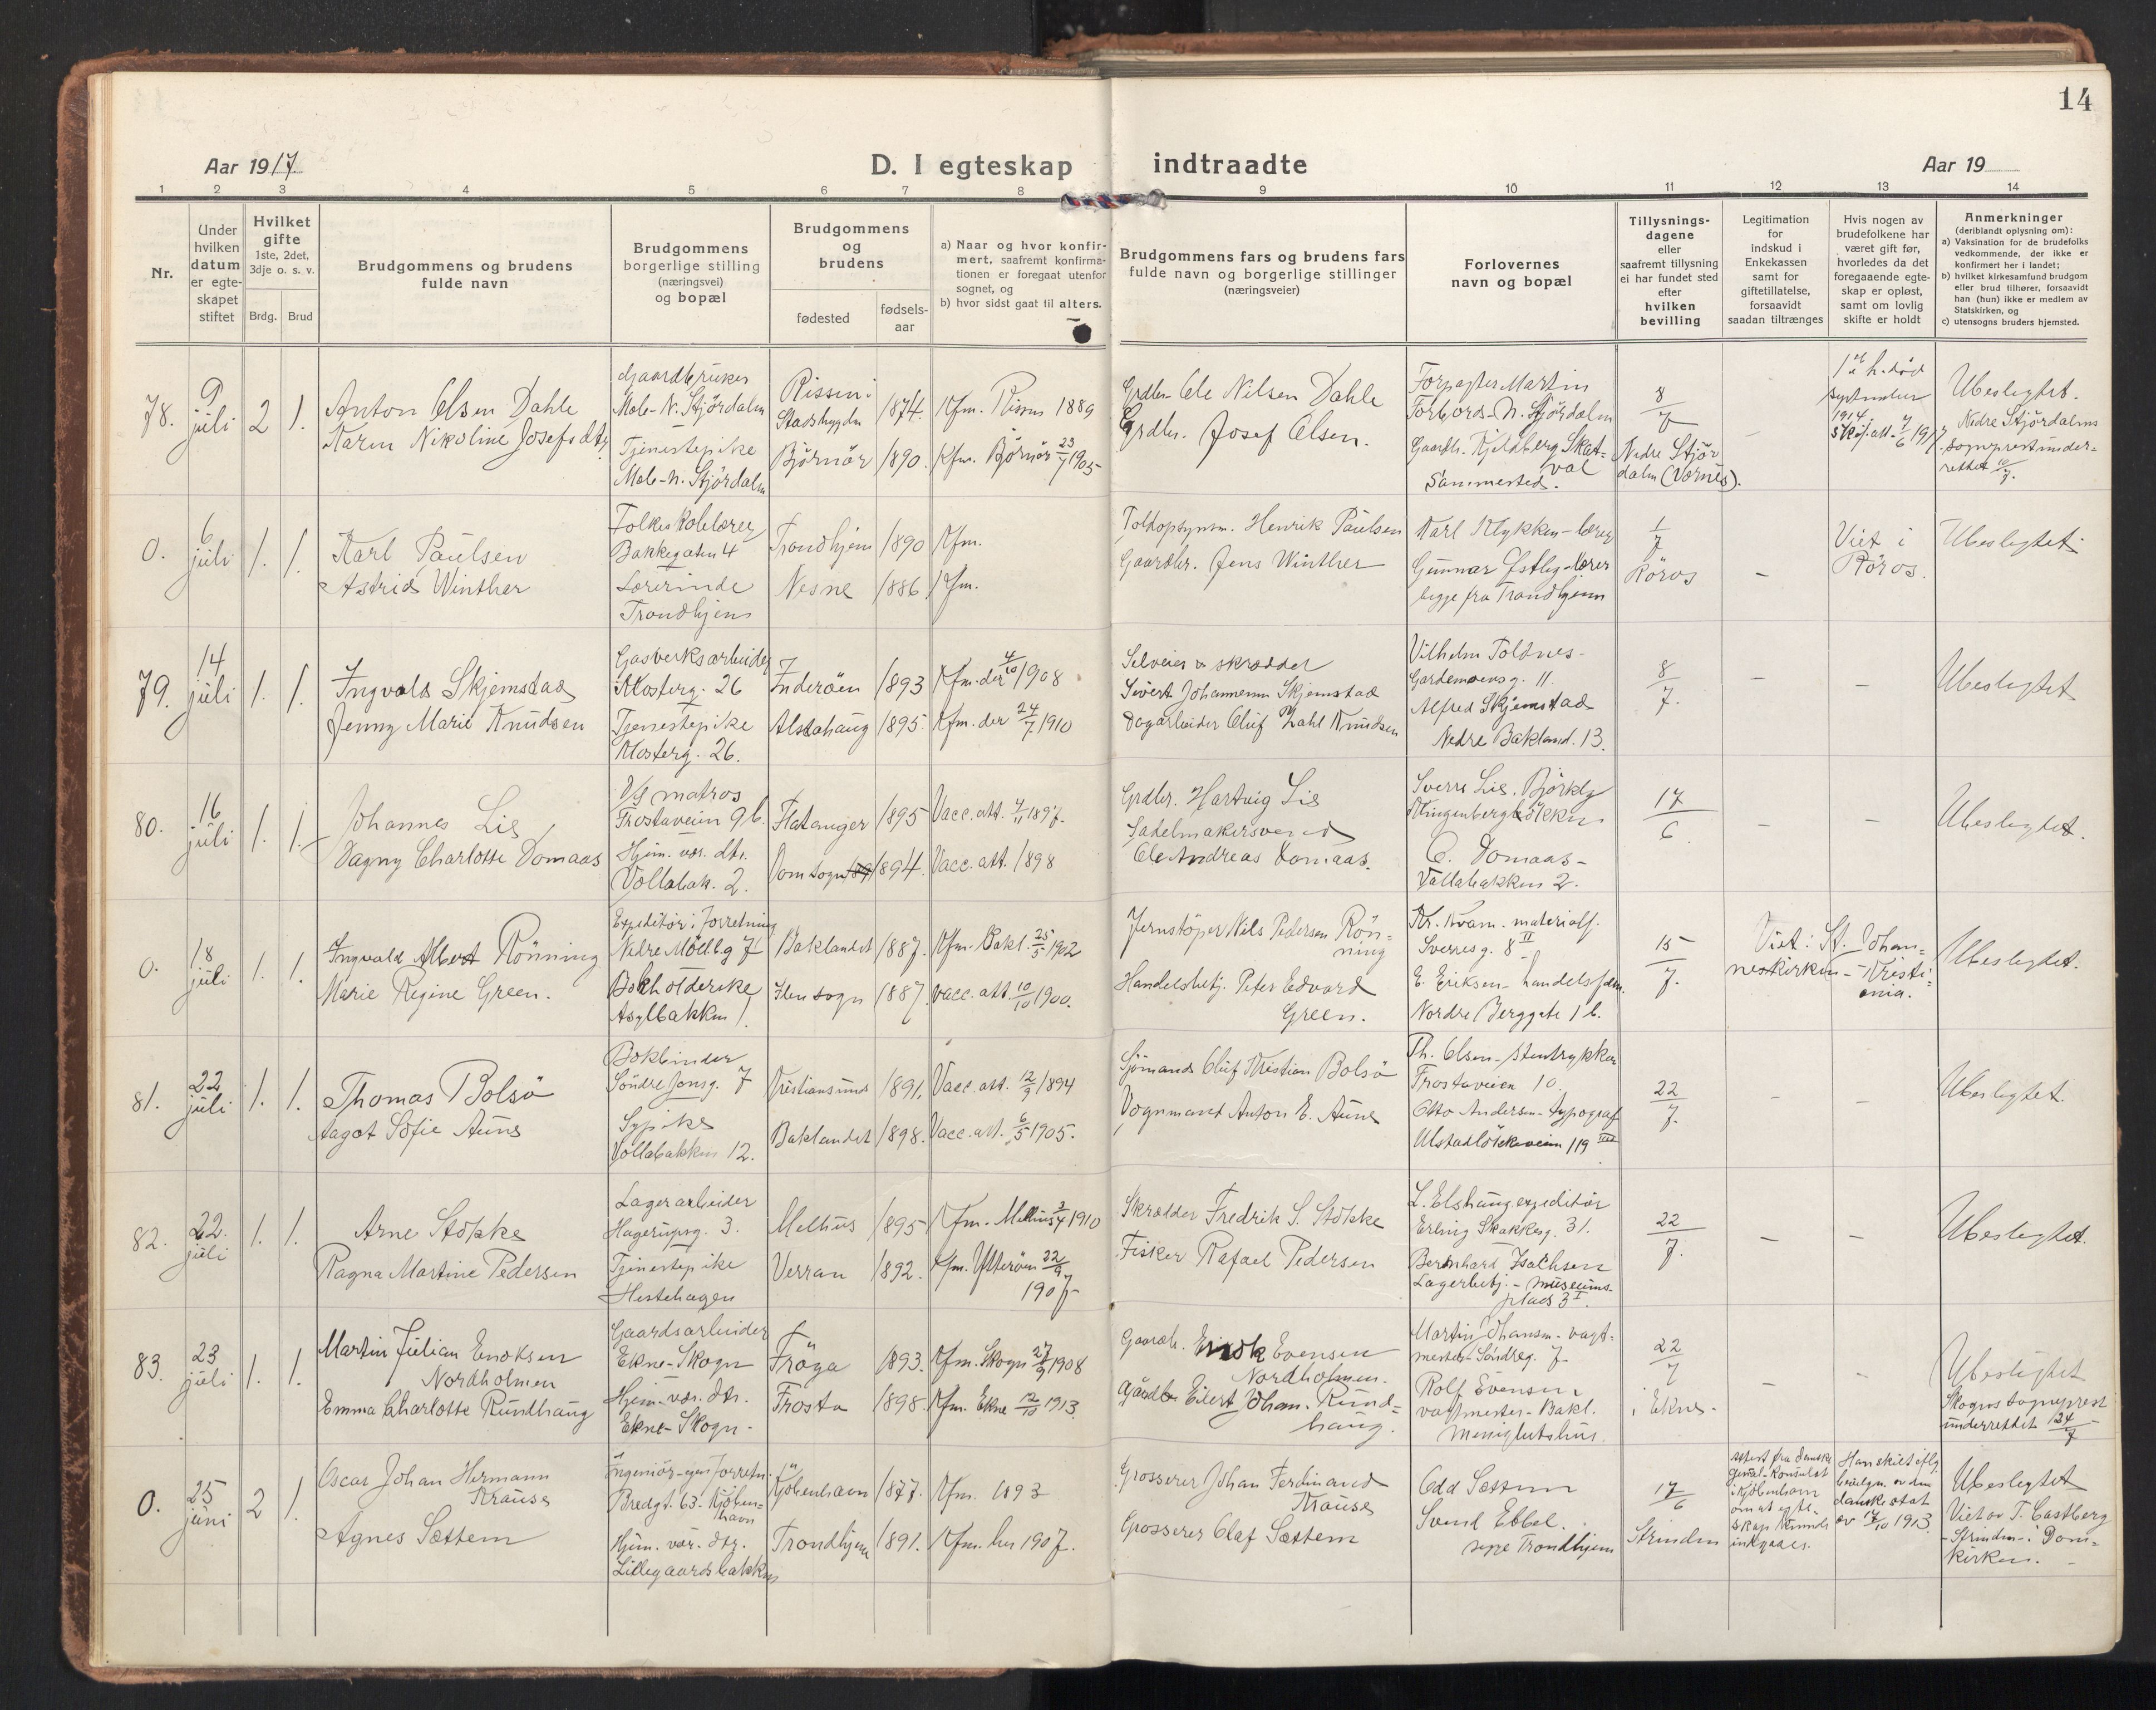 14
Aar 1917
D. I egteskap indtraadte
Aar 19
1 2 3 4 5 6 7 8 9 10 11 12 13 14
Nr.
Under
hvilken
datum
er egte-
skapet
stiftet
Hvilket
gifte
1ste, 2det,
3dje o. s. v.
Brdg. Brud
Brudgommens og brudens
fulde navn
Brudgommens
borgerlige stilling
(næringsvei)
og bopæl
Brudgommens
og
brudens
fødested
fødsels-
aar
a) Naar og hvor konfir-
mert, saafremt konfirma-
tionen er foregaat utenfor
sognet, og
b) hvor sidst gaat til alters.
Brudgommens fars og brudens fars
fulde navn og borgerlige stillinger
(næringsveier)
Forlovernes
navn og bopæl
Tillysnings-
dagene
eller
saafremt tillysning
ei har fundet sted
efter
hvilken
bevilling
Legitimation
for
indskud i
Enkekassen
samt for
giftetillatelse,
forsaavidt
saadan tiltrænges
Hvis nogen av
brudefolkene har
været gift før,
hvorledes da det
foregaaende egte-
skap er opløst,
samt om lovlig
skifte er holdt
Anmerkninger
(deriblandt oplysning om):
a) Vaksination for de brudefolks
vedkommende, der ikke er
konfirmert her i landet;
b) hvilket kirkesamfund brudgom
eller brud tilhører, forsaavidt
han (hun) ikke er medlem av
Statskirken, og
c) utensogns bruders hjemsted.
78.
9
juli
2 1.
Anton Olsen Dahle
Karen Nikoline Josefsdtr
Gaardbruker
Mæle-N. Stjördalen
Tjenestepike
Mæle-N. Stjördalen
Rissen i
Stadsbygden
Bjørnør
1874.
1890.
Kfm. Rissen 1889
Kfm. Bjørnør 23/7 1905
Grdbr. Ole Nilsen Dahle
Grdbr. Josef Olsen.
Forpagter Martin
Forbord-N. Stjördalen
Gaardbr. Kjeldberg Skat-
val
Sammested.
8/7
Nedre Stjör
dalen (Værnes).
–
1ste h. död
september
1914
Skif. att. 7/6 1917
Ubeslegtet.
Nedre Stjördalens
sogneprest under-
rettet 10/7.
0.
6
juli
1. 1.
Karl Paulsen
Astrid Winther
Folkeskolelærer
Bakkegaten 4
Lærerinde
Trondhjem
Trondhjem
Nesne
1890
1886
Kfm.
Kfm.
Toldopsynsm. Henrik Paulsen
Gaardbr. Jens Winther
Karl Klykken-lærer
Gunnar Østby-lærer
begge fra Trondhjem
1/7
Röros
–
Viet i
Röros.
Ubeslegtet
79.
14
juli
1. 1.
Ingvald Skjemstad
Jenny Marie Knudsen
Gasverksarbeider
Klosterg. 26
Tjenestepike
Klosterg. 26.
Inderöen
Alstahaug
1893
1895.
Kfm. der 4/10 1908
Kfm. der 24/7 1910
Selveier & skrædder
Sivert Johannesen Skjemstad
Dagarbeider Oluf Zahl Knudsen
Vilhelm Toldnes-
Gardemoensg. 11.
Alfred Skjemstad
Nedre Bakland. 13.
8/7.
– –
Ubeslegtet
80.
16
juli
1. 1.
Johannes Lie
Dagny Charlotte Domaas
matros
Frostaveien 9b.
Hjem. vær. dtr.
Vollabak. 2.
Flatanger
Vor. sogn
1895
1894.
Vacc. att. 4/11 1897.
Vacc. att. 1898
Grdbr. Hartvig Lie
Sadelmakersvend
Ole Andreas Domaas.
Sverre Lie. Björkly
Klingenberglökken
O. Domaas-
Vollabakken 2.
17/6
– –
Ubeslegtet.
0.
18
juli
1. 1.
Ingvald Albert Rönning
Marie Regine Green.
Expeditör i forretning
Nedre Möllbg 7
Bokholderske
Asylbakken 1.
Baklandet
Ilen sogn
1887.
1887.
Kfm. Bakl. 25/5 1902
vacc. att. 10/10 1900.
Jernstöper Nils Pedersen Rön-
ning
Handelsbetj. Peter Edvard
Green.
Kr. Kvam. materialf.
Sverresg. 8 II
E. Eriksen- handelsfdm.
Nordre Berggate 1b.
15/7.
Viet i St. Johan-
neskirken – Kristi-
ania.
Ubeslegtet.
81.
22
juli
1. 1.
Thomas Bolsö
Aagot Sofie Aune
Bokbinder
Söndre Jonsg. 7
Sypike
Vollabakken 12.
Kristiansund
Baklandet
1891.
1898.
Vacc. att. 12/9 1894
Vacc. att. 6/5 1905.
Sjömand Oluf Kristian Bolsö
Vognmand Anton E. Aune
Th. Olsen-stentrykker
Frostaveien 10.
Otto Andersen-typograf
Ulstadlökveien 119 III
22/7.
– –
Ubeslegtet.
82.
22.
juli
1. 1.
Arne Stokke
Ragna Martine Pedersen
Lagerarbeider
Hagerupsg. 3.
Tjenestepike
Hestehagen
Melhus
Verran
1895
1892.
Kfm. Melhus 3/4 1910
Kfm. Ytterøen 22/9
1907
Skrædder Fredrik S. Stokke
Fisker Rafael Pedersen
L. Elshaug expeditör
Erling Skakkesg. 31.
Bernhard Isachsen
Lagerbetj. – Museums-
plads 3 I.
22/7.
– –
Ubeslegtet.
83.
23
juli
1. 1.
Martin Julian Enoksen
Nordholmen
Emma Charlotte Rundhaug
Gaardsarbeider
Ekne-Skogn
Hjem. vær. dtr.
Ekne-Skogn-
Fröya
Frosta
1893.
1898
Kfm. Skogn 27/9 1908
Kfm. Ekne 12/10 1913.
Gaardb. Enok Evensen
Nordholmen.
Gaardbr Eilert Johan. Rund-
haug.
Martin Johansen- vagt-
mester-Söndreg. 7
Rolf Evensen
vaktmester- Bakl.
Menighetshus.
22/7
i Ekne-
– –
Ubeslegtet
Skogns sogneprest
underrettet 24/7
0.
25
juni
2 1.
Oscar Johan Hermann
Krause
Agnes Sættem
Ingeniör-egen forretn.
Bredgt. 63. Kjöben-
havn
Hjem. vær. dtr.
Lillegaardsbakken
Kjöbenhavn
Trondhjem
1877.
1891.
Kfm. 1893
Kfm. her 1907.
Grosserer Johan Ferdinand
Krause
Grosserer Olaf Sættem
Odd Sættem
Svend Ebbel.
begge Trondhjem
17/6
Strinden
Attest fra danske
general-Konsulat
i Kjöbenhavn
om at egte-
skap kunde
inkgaaes.
Han skilt iflg.
bevilgn. av den
danske stat
av 17/10 1913.
Ubeslegtet
Viet av T. Castberg
-Strinden-i Dom-
kirken.